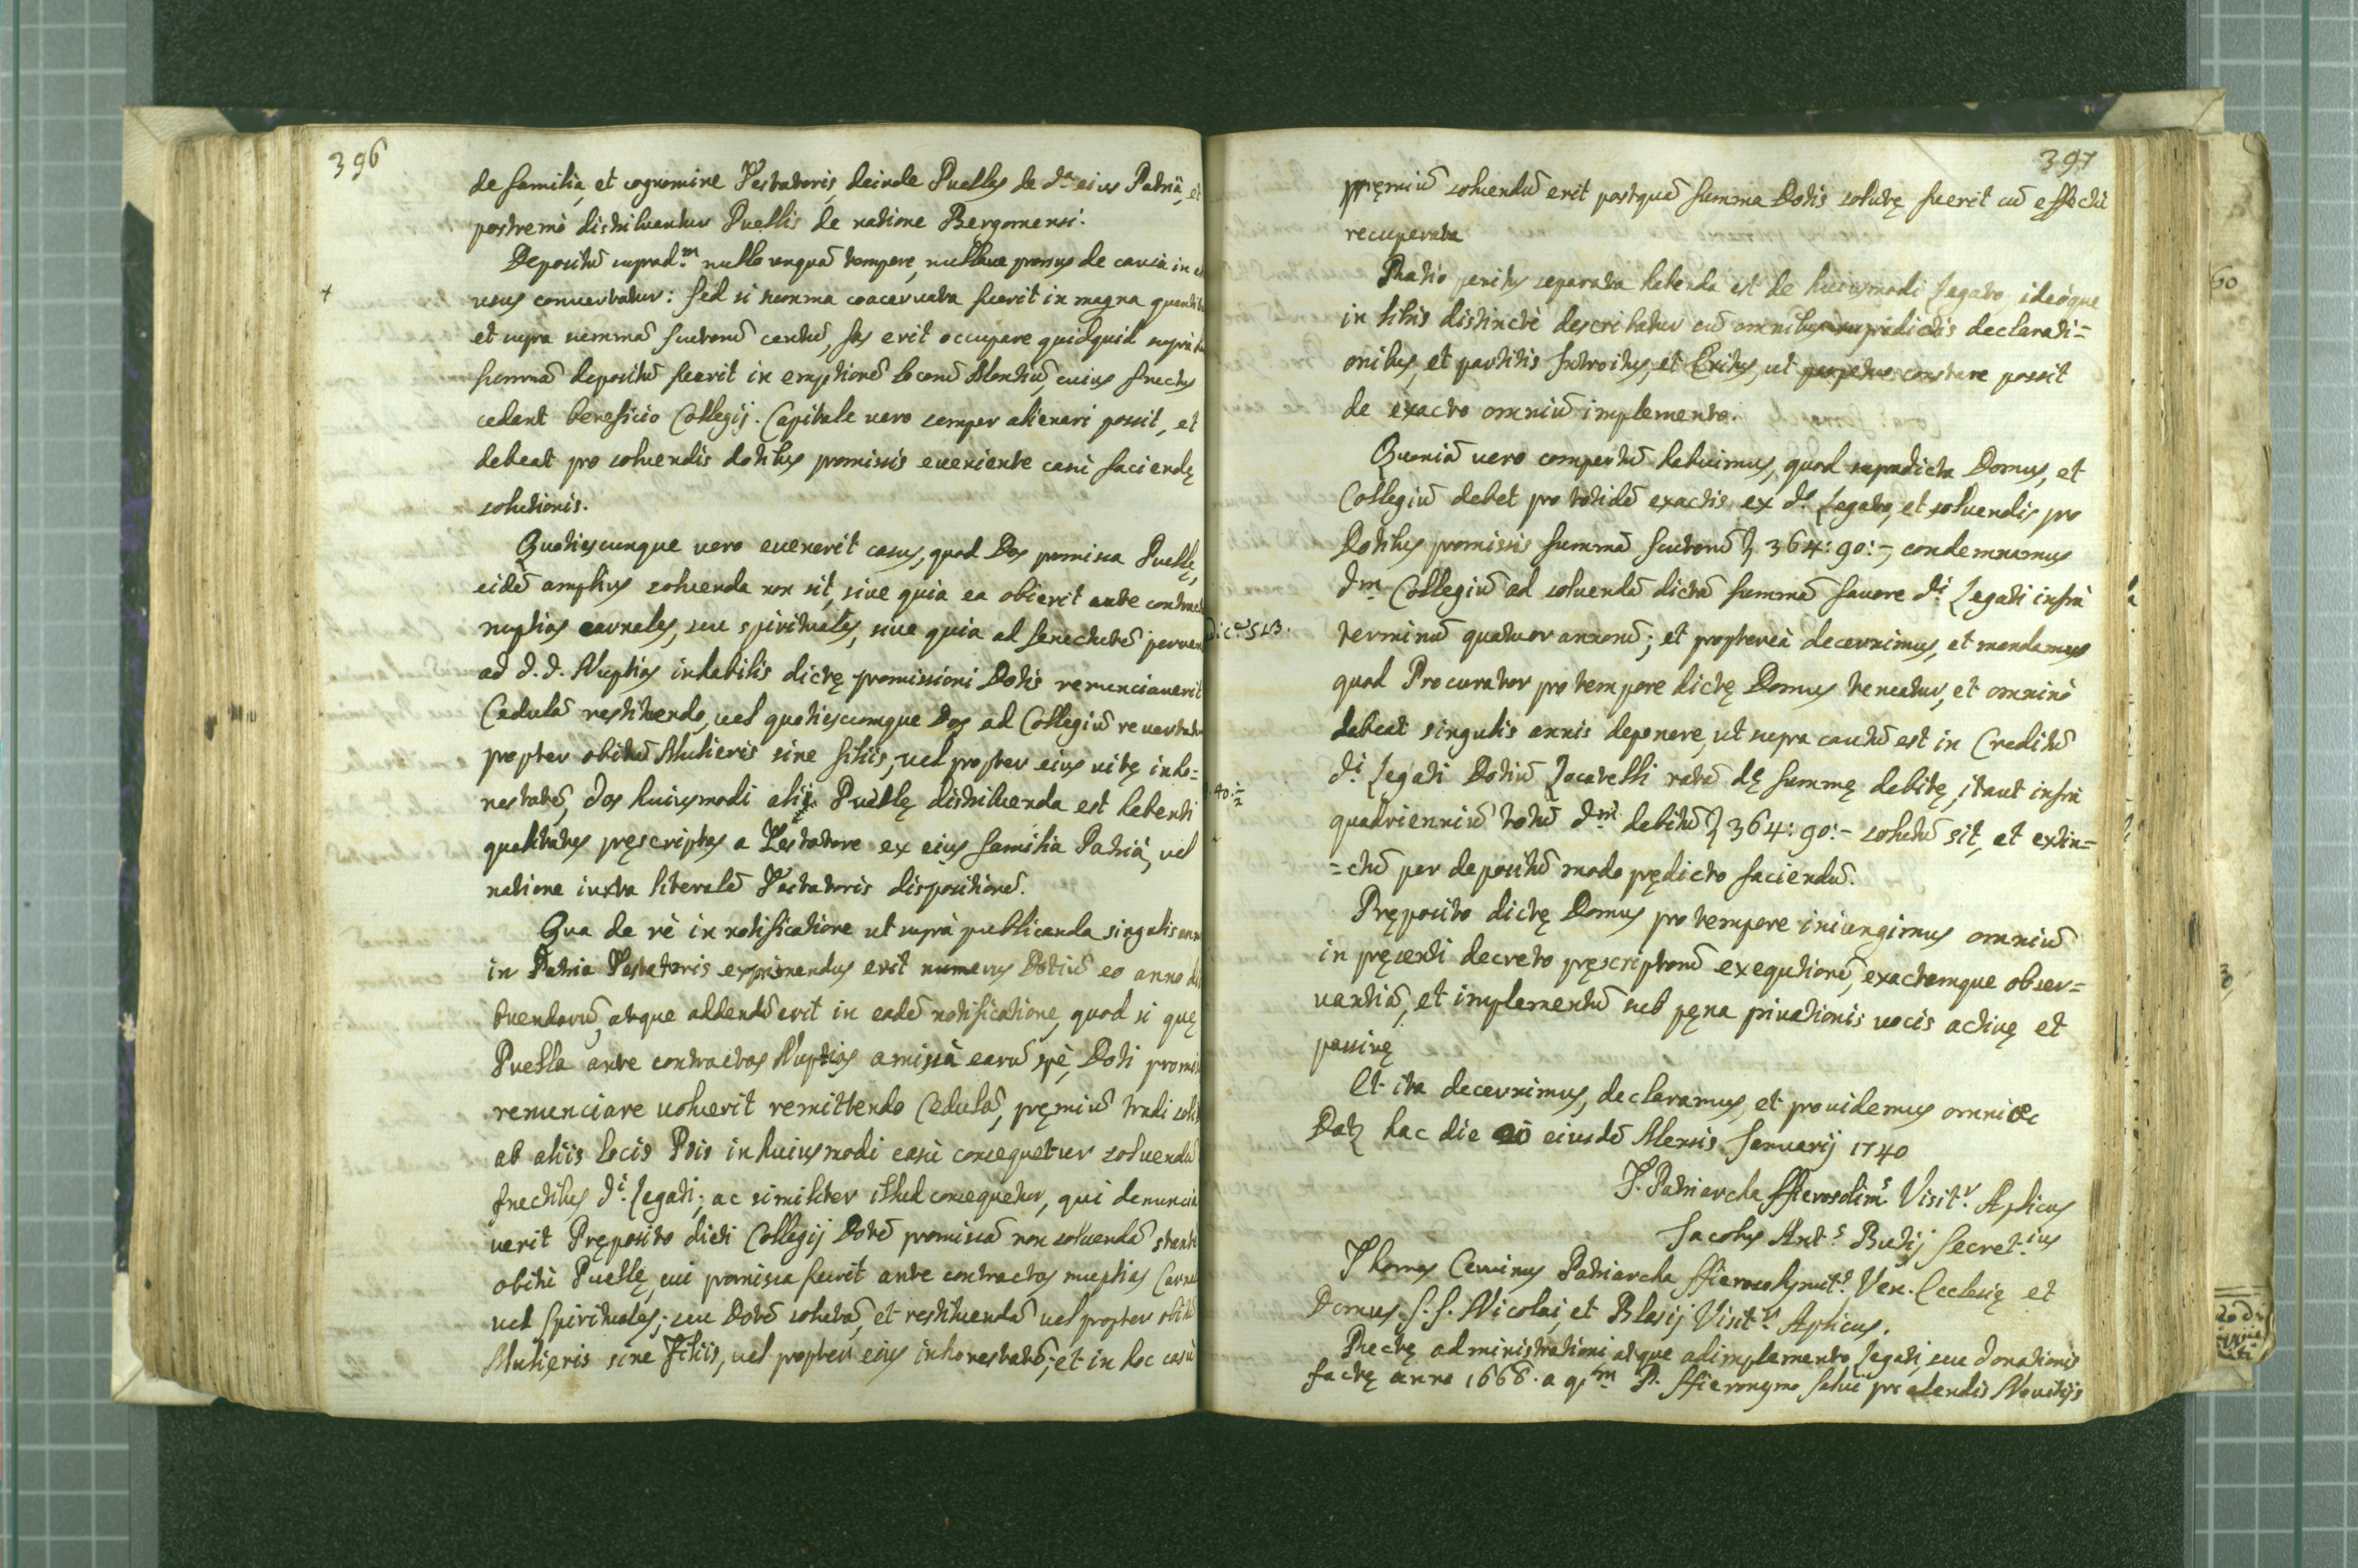 396
de familia, et cognomine Testatoris, deinde Puellis de d.ª eius Patria, et
postremò distribuantur Puellis de natione Bergomensi.
Depositũ suprad.m nullo unquã tempore, nullave prorsus de causa in
+
usus convertatur: sed si summa coacervata fuerit in magna
et supra summã scutorũ centũ, fas erit occupare quidquid supra
summã depositũ fuerit in emptionẽ locorũ Montiũ, cuius fructus
cedant beneficio Collegij. Capitale vero semper alienari possit, et
debeat pro solvendis dotibus promissis eveniente casu faciendę
solutionis.
Quotiescunque vero evenerit casus, quod Dos promissa Puellę,
eidẽ amplius solvenda non sit, sive quia ea obierit ante
nuptias carnales, seu spirituales, sive quia ad senectutẽ
ad d.d. Nuptias inhabilis dictę promissioni Dotis renunciaverit
Cedulã restituendo, vel quotiescumque Dos ad Collegiũ
propter obitũ Mulieris sine filiis, vel propter eius vitę inho=
nestatẽ, dos huiusmodi alij Puellę distribuenda est habenti
qualitates pręscriptas a Testatore ex eius familia Patria, vel
natione iuxta literalẽ Testatoris dispositionẽ.
Qua de rè in notificatione ut suprà publicanda singulis
in Patria Testatoris exprimendus erit numerus Dotiũ eo anno
buendarũ, atque addendũ erit in eadẽ notificatione, quod si quę
Puella ante contractas Nuptias amissà earũ spè, Doti
renunciare voluerit remittendo Cedulã, pręmiũ tradi
ab aliis locis Piis in huiusmodi casu consequetur solvendũ
fructibus d.i Legati; ac similiter illud consequetur, qui
verit Pręposito dicti Collegij Dotẽ promissã non solvendã
obitu Puellę, cui promissa fuerit ante contractas nuptias
vel Spirituales; seu Dotẽ solutã, et restituendã vel propter
Mulieris sine Filiis, vel propter eius inhonestatẽ; et in hoc casu
397
pręmiũ solvendũ erit postquã summa Dotis solutę fuerit cũ effectu
recuperata
Ratio penitus separata habenda est de huiusmodi Legato ideòque
in libris distinctè describatur cũ omnibus supradictis declarati=
onibus, et partitis Introitus, et Exitus, ut perpetuo constare possit
de exacto omniũ implemento.
Quoniã vero compertũ habuimus, quod supradicta Domus, et
Collegiũ debet pro totidẽ exactis ex d.o Legato, et solvendis pro
Dotibus promissis summã scutorũ 364:90:-, condemnamus
d.m Collegiũ ad solvendã dictã summã favore d.i Legati infrà
terminũ quatuor annorũ; et proptereà decernimus, et mandamus
quod Procurator pro tempore dictę Domus teneatur, et omninò
debeat singulis annis deponere, ut supra cautũ est in Creditũ
d.i Legati Dotiũ Locatelli ratã dę summę debitę, itaut infrà
quadrienniũ totũ d.m debitũ 364:90:- solutũ sit, et extin=
=ctũ per depositũ modo prędicto faciendũ.
Pręposito dictę Domus pro tempore iniungimus omniũ
in pręsenti decreto pręscriptorũ exequtionẽ, exactamque obser=
vantiã, et implementũ sub pęna privationis vocis activę et
passivę
Et ita decernimus, declaramus, et providemus omni &c
Dat hac die 20 eiusdẽ Mensis Januarij 1740
T. Patriarcha Hierosolim.s Visit.r Aplicus
Jacobus Ant.s Butij Secret.ius
Thomas Cervinus Patriarcha Hierosolymit.s Ven. Ecclesię et
Domus S.S. Nicolai, et Blasij Visit.r Aplicus.
Rectę administrationi atque adimplemento Legati, seu donationis
factę anno 1668. a q.m P. Hieronymo Salvi pro alendis Novitijs